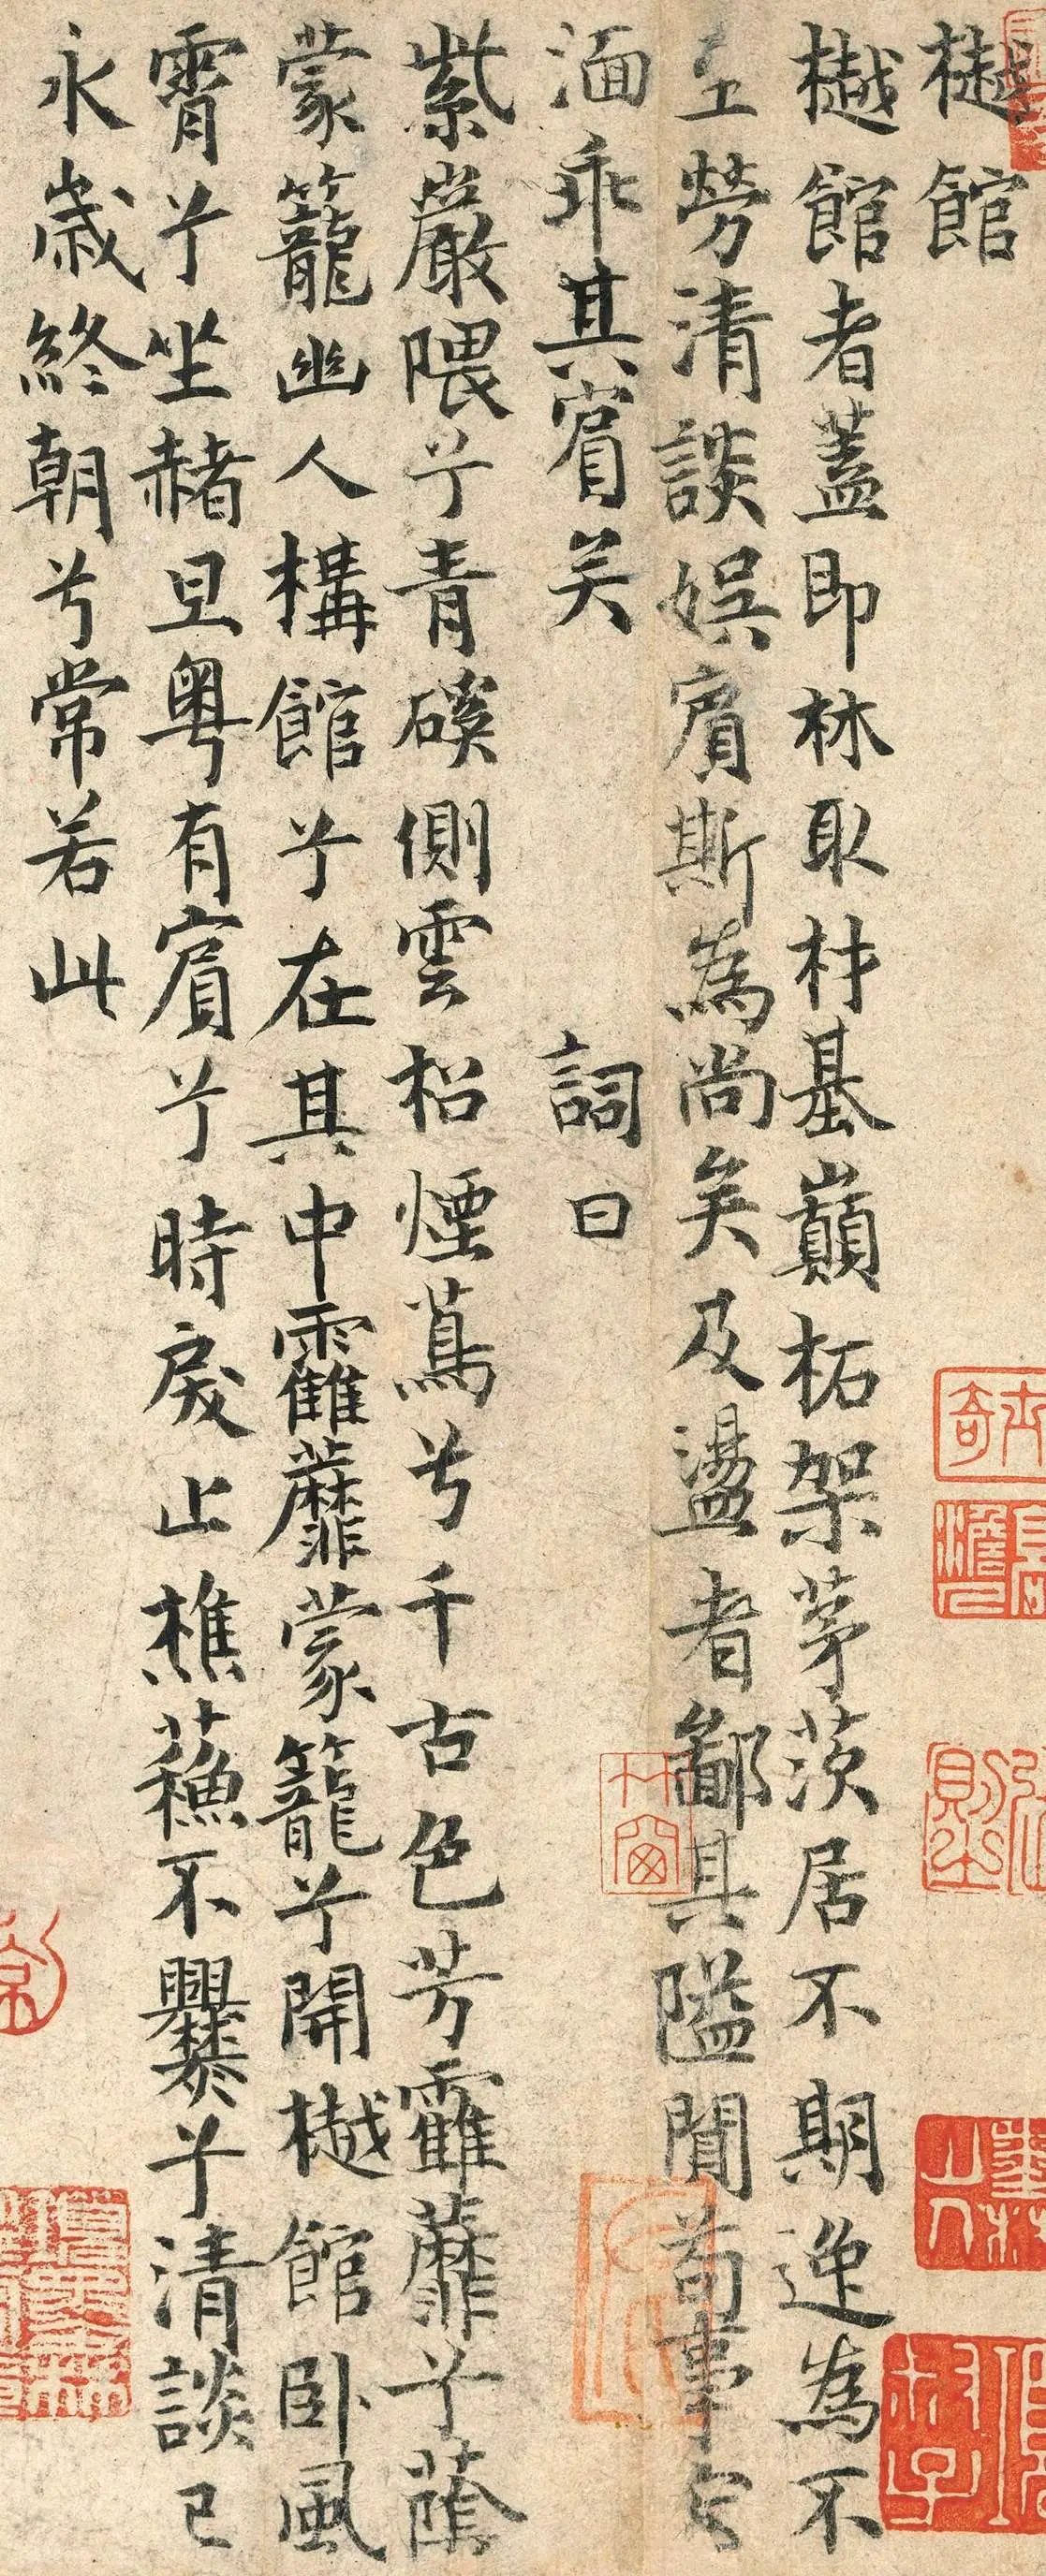 樾館
樾館者蓋即林取材基巔柘架茅茨居不期逸為不
至勞清談娛賓斯為尚矣及盪者鄙其隘閴苟事宏
湎乖其賓矣 詞曰
紫巖隈兮青磎側雲松煙蔦兮千古色芳靃蘼兮蔭
蒙籠幽人構館兮在其中靃蘼蒙籠兮開樾館臥風
霄兮坐赭旦粵有賓兮時戾止樵蘓不爨兮清談已
永歲終朝兮常若此